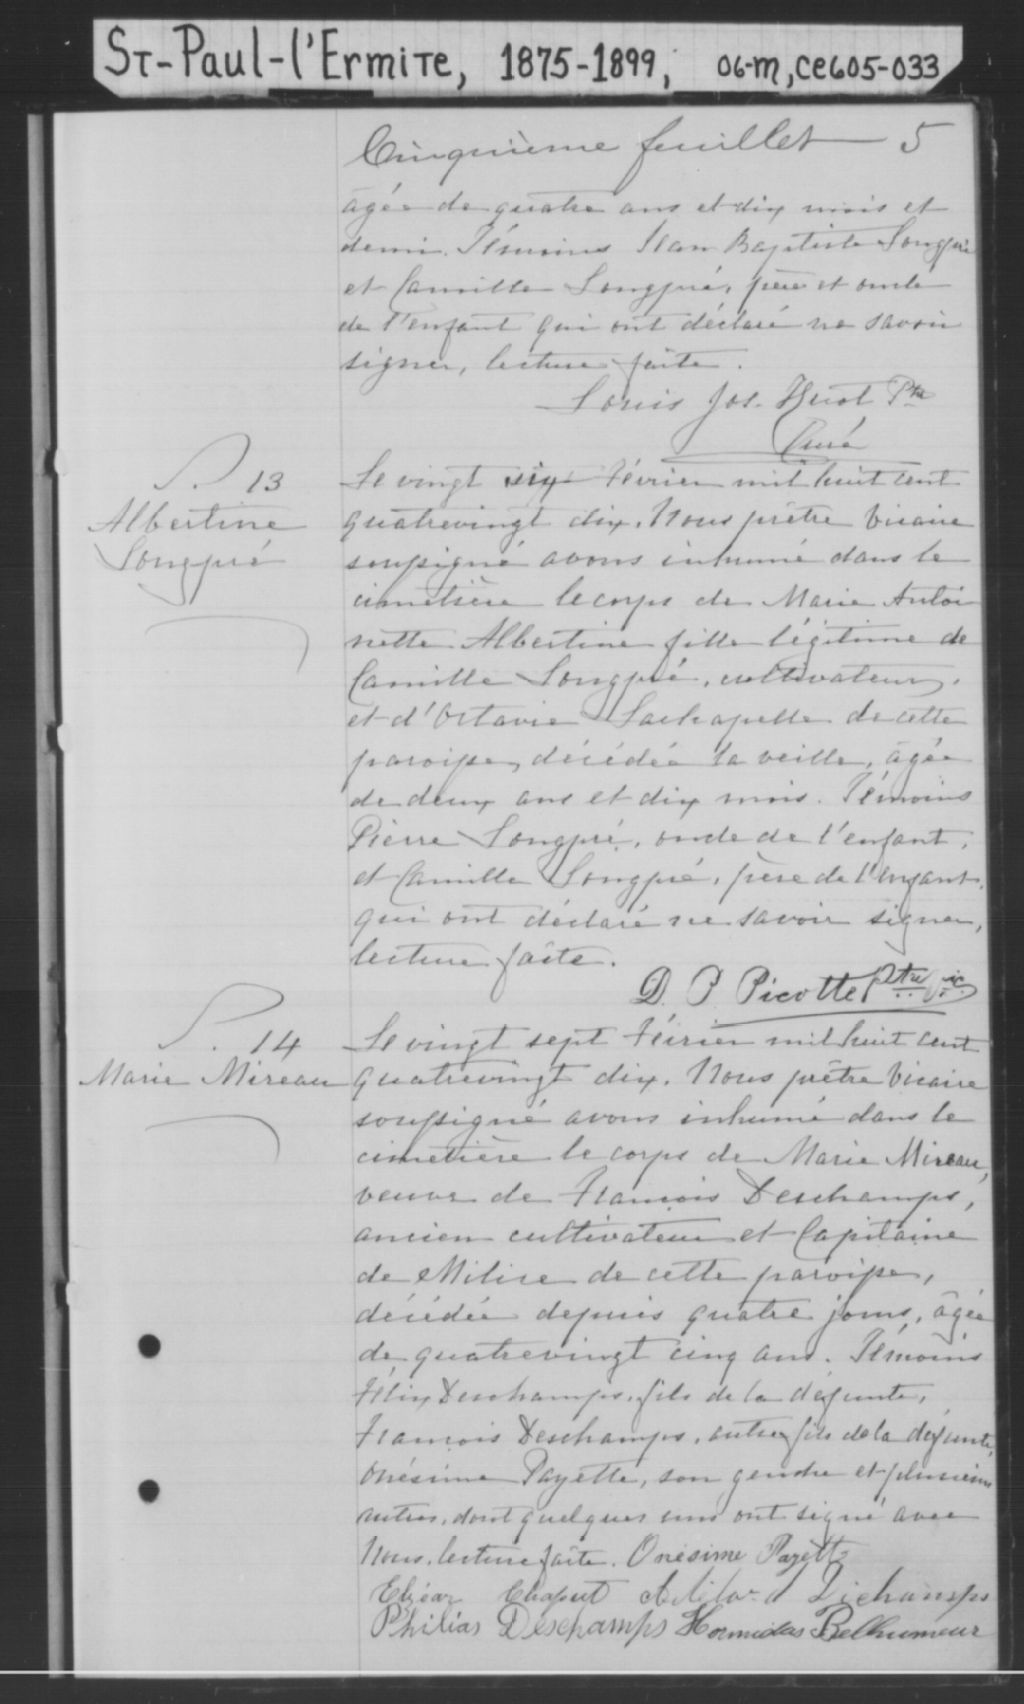 ST-PAUL-l'ERMITE, 1875-1899, 06-M, CE605-033
Cinquième feuillet 5
âgée de quatre ans et dix mois et
demi. Témoins Jean Baptiste Longpré
et Camille Longpré, père et oncle
de l'enfant qui ont déclaré ne savoir
signer, lecture faite.
Louis Jos. Huot Ptre
Curé
S. 13
Albertine
Longpré
Le vingt six Février mil huit cent
quatrevingt dix. Nous prêtre Vicaire
soussigné avons inhumé dans le
cimetière le corps de Marie Antoi
nette Albertine fille légitime de
Camille Longpré, cultivateur,
et d'Octavie Lachapelle de cette
paroisse, décédée la veille, âgée
de deux ans et dix mois. Témoins
Pierre Longpré, oncle de l'enfant,
et Camille Longpré, père de l'enfant,
qui ont déclaré ne savoir signer,
lecture faite.
D. P. Picotte Ptre Vic.
S. 14
Marie Mireau
Le vingt sept Février mil huit cent
quatrevingt dix. Nous prêtre Vicaire
soussigné avons inhumé dans le
cimetière le corps de Marie Mireau,
veuve de François Deschamps,
ancien cultivateur et Capitaine
de Milice de cette paroisse,
décédée depuis quatre jours, âgée
de quatrevingt cinq ans. Témoins
Félix Deschamps, fils de la défunte,
François Deschamps, autre fils de la défunte,
Onésime Payette, son gendre et plusieurs
autres, dont quelques uns ont signé avec
Nous, lecture faite. Onésime Payette
Elzéar Chaput Dechamps
Philias Deschamps Hormidas Bellhumeur